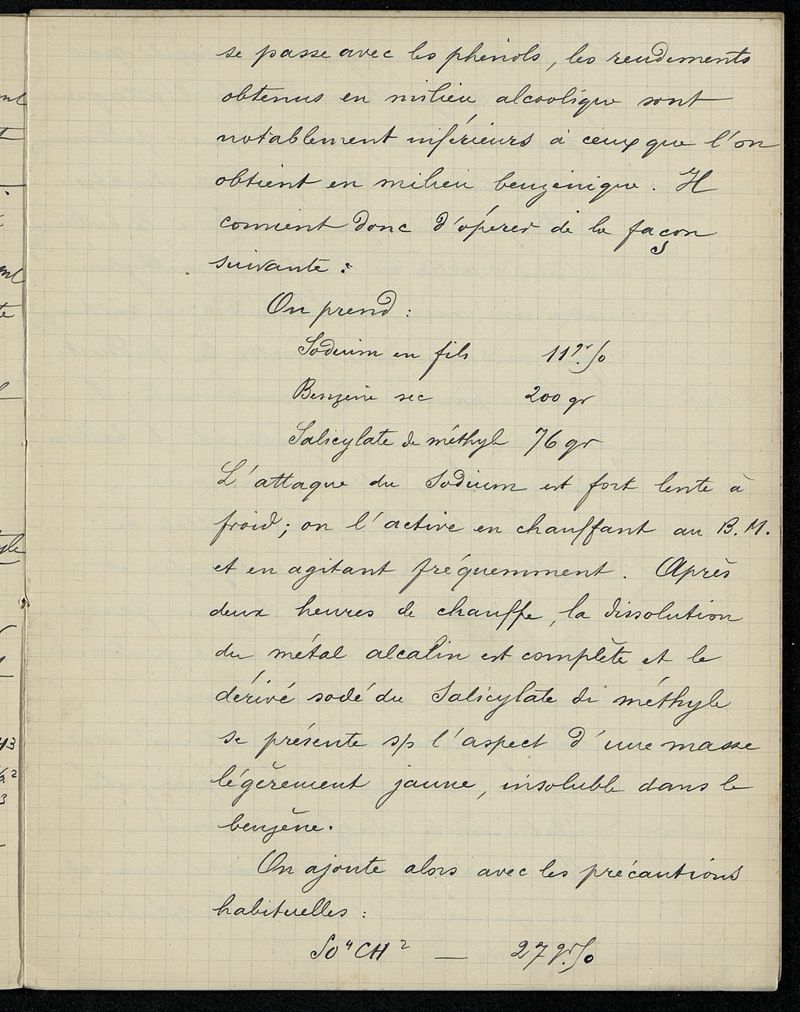 se passe avec les phénols, les rendements
obtenus en milieu alcoolique sont
notablement inférieurs à ceux que l'on
obtient en milieu benzénique. Il
convient donc d'opérer de la façon
suivante :
On prend :
Sodium en fils 11gr,50
Benzène sec 200 gr
Salicylate de méthyle 76 gr
L'attaque du Sodium est fort lente à
froid; on l'active en chauffant au B.M.
et en agitant fréquemment. Après
deux heures de chauffe, la dissolution
du métal alcalin est complète et le
dérivé sodé du Salicylate de méthyle
se présente s/s l'aspect d'une masse
légèrement jaune, insoluble dans le
benzène.
On ajoute alors avec les précautions
habituelles :
SO⁴CH² — 27gr,50